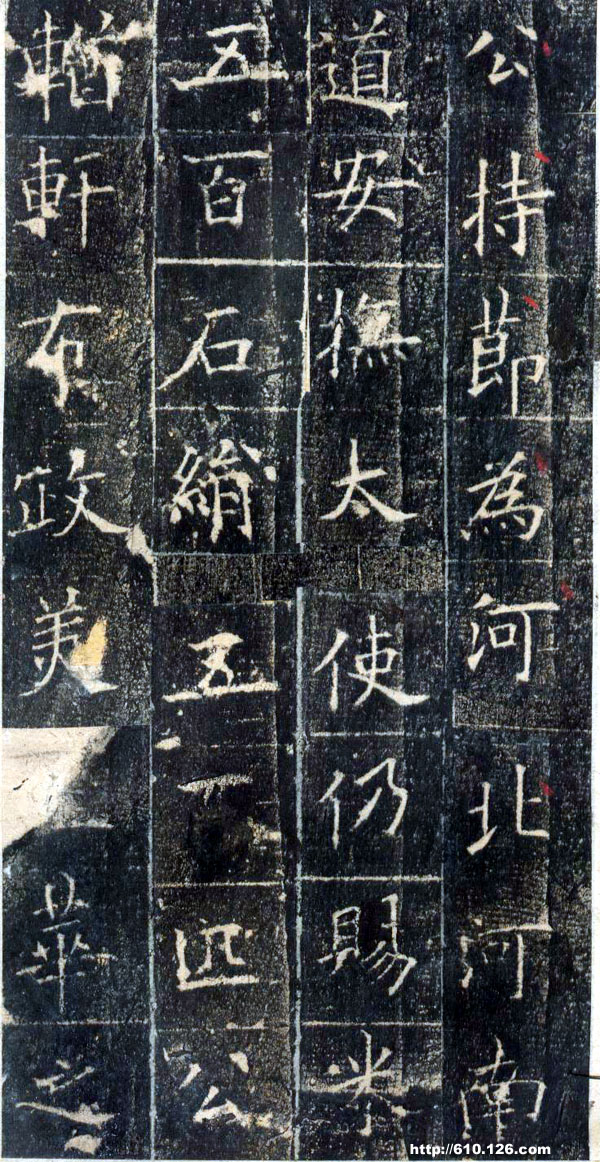 公持莭為河北河南
道安撫太使仍賜米
五百石絹五匹公
輶軒布政美華之
http://610.126.com